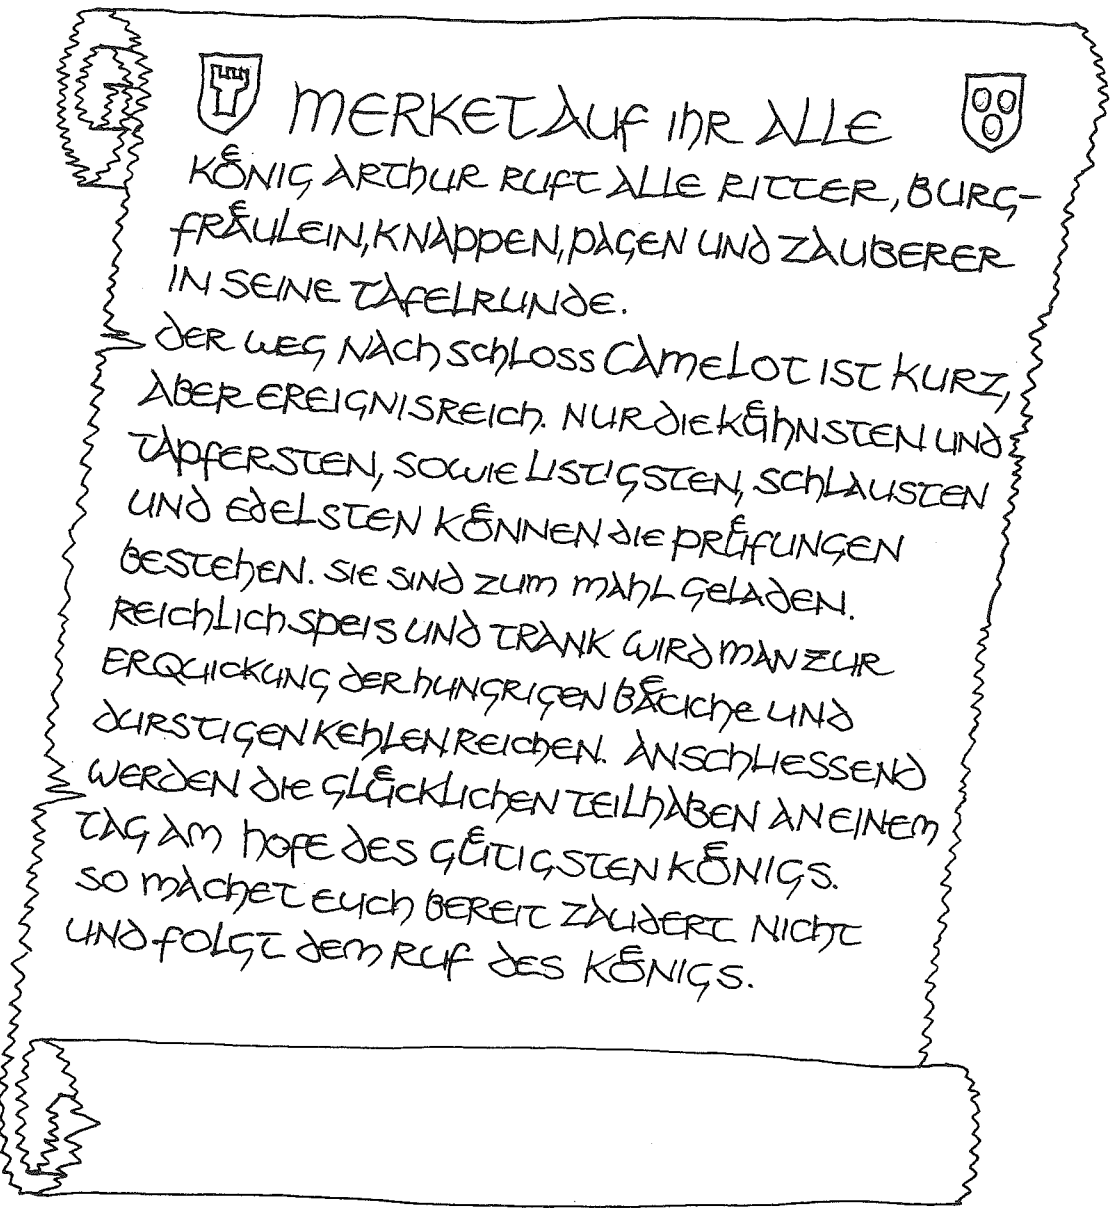 MERKET AUF IHR ALLE
KÖNIG ARTHUR RUFT ALLE RITTER, BURG-
FRÄULEIN, KNAPPEN, PAGEN UND ZAUBERER
IN SEINE TAFELRUNDE.
DER WEG NACH SCHLOSS CAMELOT IST KURZ,
ABER EREIGNISREICH. NUR DIE KÜHNSTEN UND
TAPFERSTEN, SOWIE LISTIGSTEN, SCHLAUSTEN
UND EDELSTEN KÖNNEN DIE PRÜFUNGEN
BESTEHEN. SIE SIND ZUM MAHL GELADEN.
REICHLICH SPEIS UND TRANK WIRD MAN ZUR
ERQUICKUNG DER HUNGRIGEN BÄUCHE UND
DURSTIGEN KEHLEN REICHEN. ANSCHLIESSEND
WERDEN DIE GLÜCKLICHEN TEILHABEN AN EINEM
TAG AM HOFE DES GÜTIGSTEN KÖNIGS.
SO MACHET EUCH BEREIT ZAUDERT NICHT
UND FOLGT DEM RUF DES KÖNIGS.